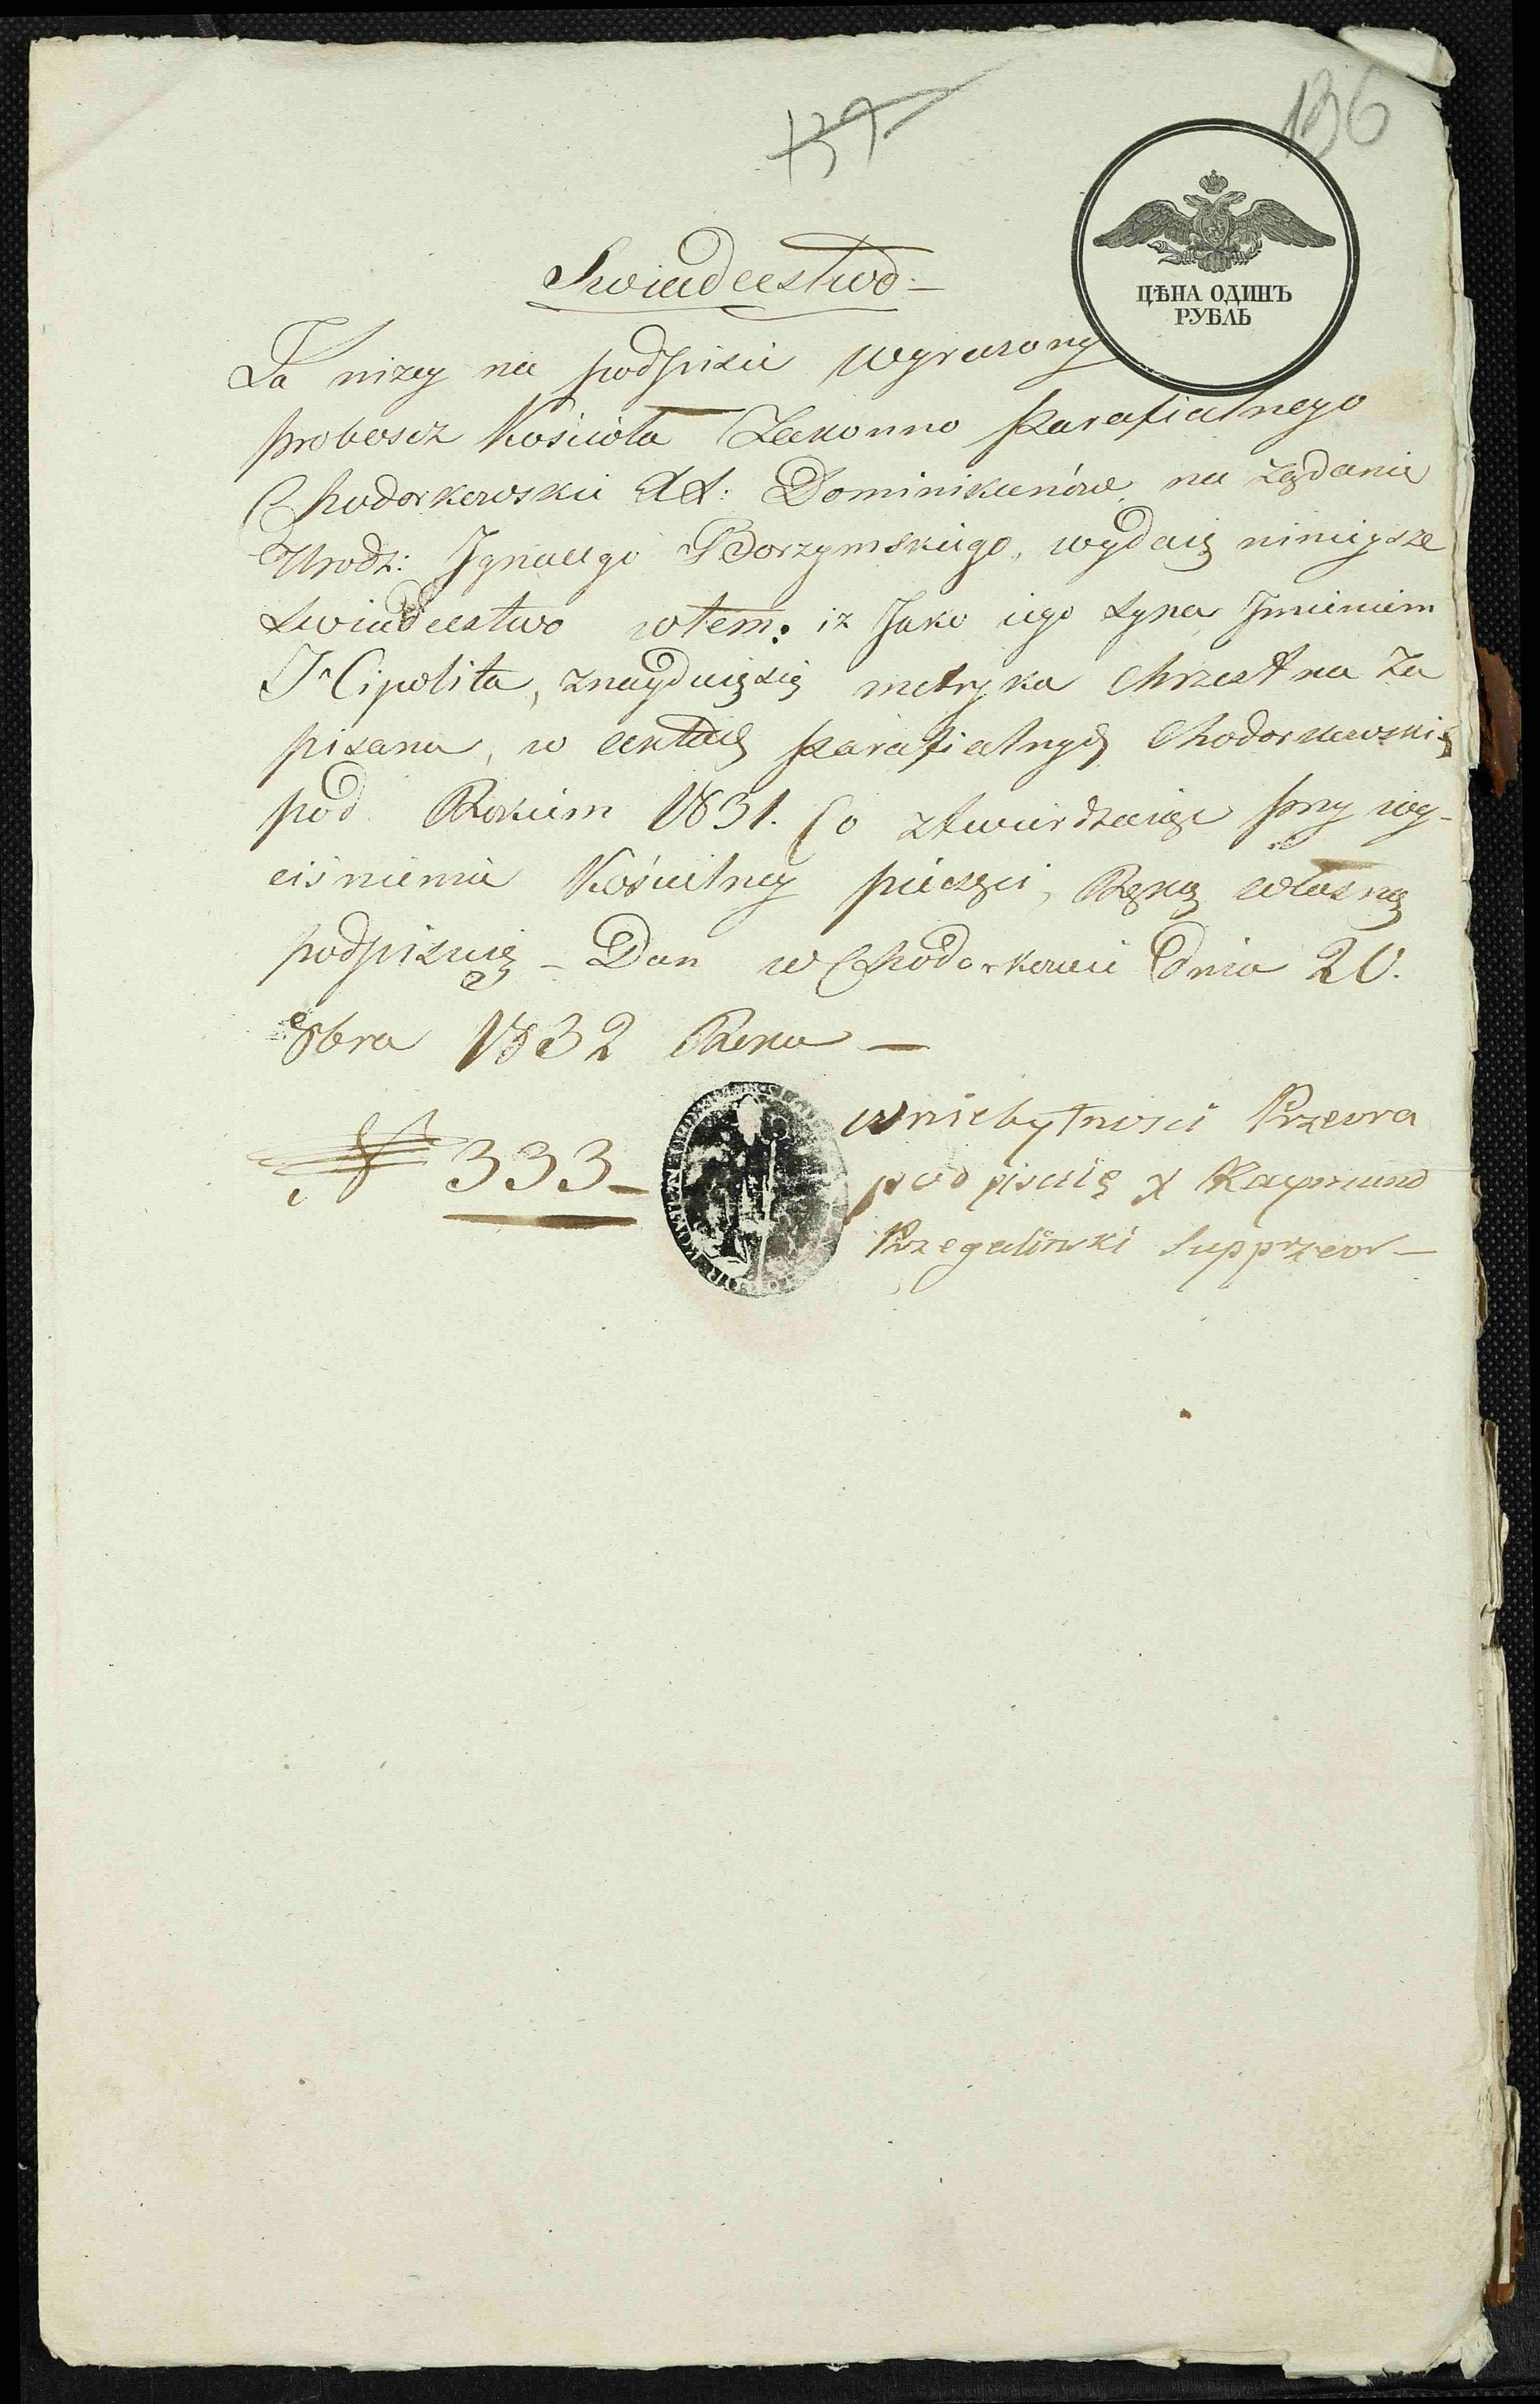 137
136
ЦѢНА ОДИНЪ
РУБЛЬ
Swiadectwo —
Ja niżey na podpisie wyrażony
proboszcz Kościoła Zakonno Parafialnego
Chodorkowskie XX: Dominikanów, na żądanie
Urodz: Ignacego Borzymskiego, wydaię ninieysze
Swiadectwo wtem: iż Jako iego Syna Jmieniem
Hipolita, znayduięsię metryka Chrzestna Za
pisana, w aktach Parafialnych Chodorkowskich
pod Rokiem 1831. Co ztwierdzaiąc przy wy-
ciśnieniu Kościelney pieczęci, Ręką własną
podpisuię — Dan w Chodorkowie Dnia 20.
8bra 1832 Roku —
wniebytnosci Przeora
N 333 —
podpisuię X Raymund
Przegaliński Supprzeor —